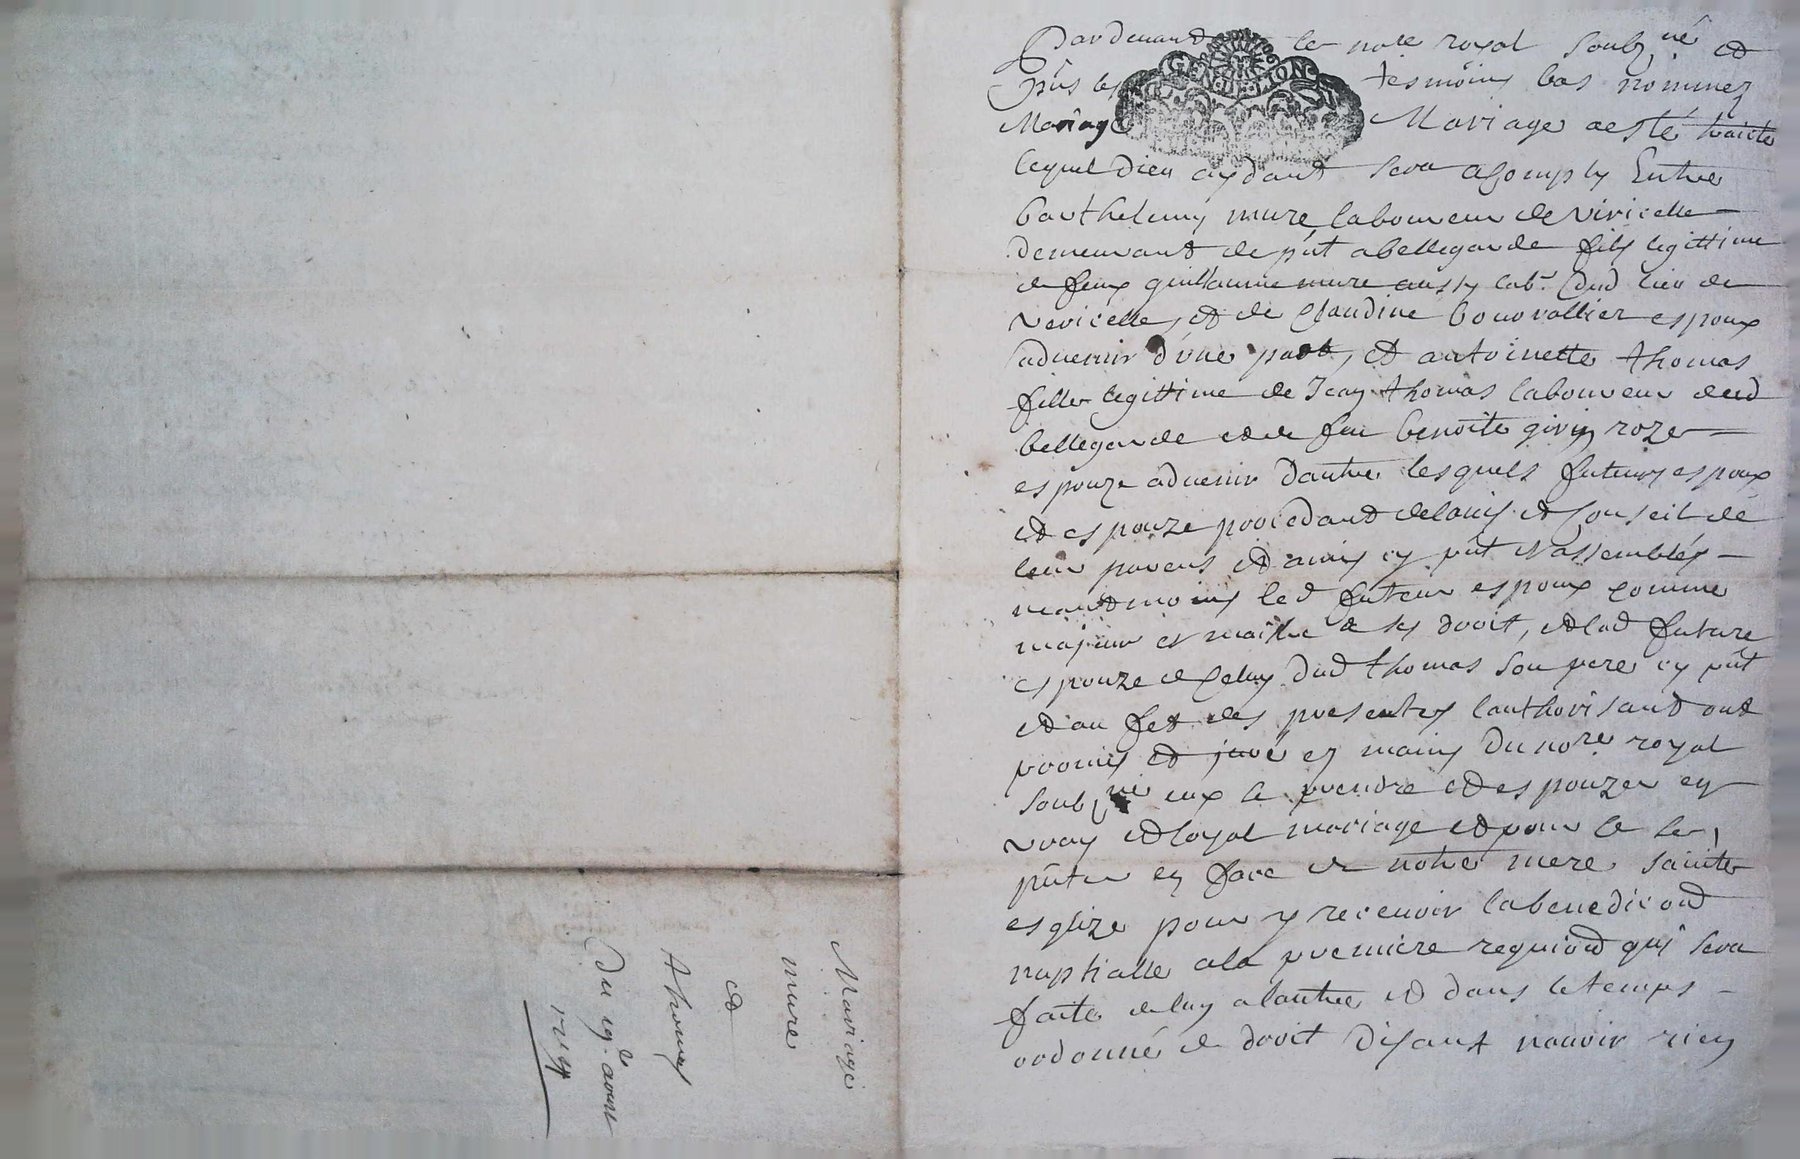 Pardevant le no.re royal soubz.né et
pnts les tesmoins bas nommez
Mariage Mariage a esté traicté
lequel dieu aydant sera acomply Entre
barthelemy mure laboureur de viricelle
demeurant de pnt a bellegarde fils legittime
de feux guillaume mure aussy lab.r dud lieu de
viricelle, et de Claudine bonvallier espoux
advenir d'une part, et antoinette thomas
fille legittime de Jean thomas laboureur dud
bellegarde et de feu benoite roze
espouze advenir d'autre lesquels futurs espoux
et espouze procedant de lavis et Conseil de
leur parens et amis cy pnt et assemblés
neantmoins led futeur espoux comme
majeur et maitre de ses droit, et lad future
espouze de Celuy dud thomas son pere cy pnt
et au fet des presentes lauthorisant ont
promis et juré es mains du no.re royal
soubz.né eux se prendre et espouzer en
vray et loyal mariage et pour ce se
pnter en face de notre mere sainte
esglize pour y recevoir la benediction
nuptialle a la premiere requiond qui sera
faite de luy a lautre et dans le temps
ordonné de droit disant n'avoir rien
Mariage
mure
et
thomas
Du avril